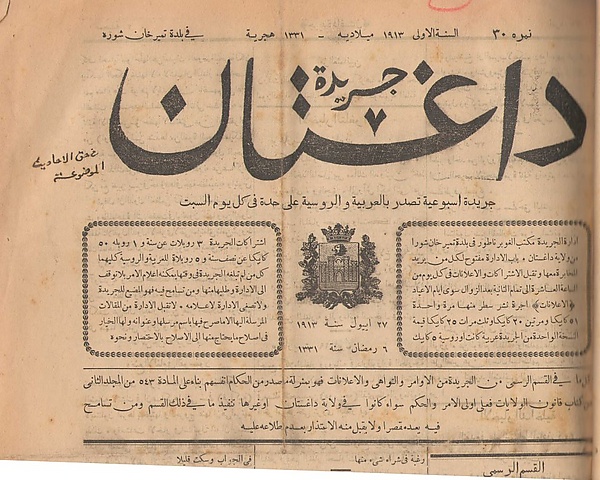 نمره ٣٠ السنة الاولى ١٩١٣ ميلاديه - ١٣٣١ هجرية في بلدة تميرخان شوره
جريدة
داغستان
جريدة اسبوعية تصدر بالعربية والروسية على حدة في كل يوم السبت
ادارة الجريدة مكتب الغوبرناطور في بلدة تميرخان شورا
من ولاية داغستان * باب الادارة مفتوح لكل من يريد
المخابرة معها وتقبل الاشتراكات والاعلانات في كل يوم من
الساعة العاشرة الى تمام الثانية بعد الزوال سوى ايام الاعياد
«الاعلانات» اجرة نشر سطر منها مرة واحدة
١٥ كاپكا ومرتين ٢٠ كاپكا وثلث مرات ٢٥ كاپكا قيمة
النسخة الواحدة من الجريدة عربية كانت او روسية ٥ كاپك
٢٧ ايبول سنة ١٩١٣
٦ رمضان سنة ١٣٣١
اشتراكات الجريدة ٣ روبلات عن سنة و ١ روبله ٥٠
كاپكا عن نصف سنة و ٥ روبلاة للعربية والروسية كليهما
كل من لم تبلغه الجريدة في وقتها يمكنه اعلام الامر بلا توقف
الى الادارة وطلبها منها ومن تسامح فيه فهو المضيع للجريدة
ولا تصغى الادارة لاعلامه * لا تقبل الادارة من المقالات
المرسلة اليها الا ما صرح فيها باسم مرسلها وعنوانه ولها الخيار
في اصلاح ما يحتاج منها الى الاصلاح بالاختصار ونحوه
ما في القسم الرسمي من الجريدة من الاوامر والنواهي والاعلانات فهو بمنزلة ما صدر من الحكام انفسهم بناء على المادة ٥٤٣ من المجلد الثاني
من كتاب قانون الولايات فعلى اولى الامر والحكم سواء كانوا في ولاية داغستان او غيرها تنفيذ ما في ذلك القسم ومن تسامح
فيه يعد مقصرا ولا يقبل منه الاعتذار بعدم اطلاعه عليه
القسم الرسمي
رغبة في شراء شيء منها
في الجواب وسكت قليلا